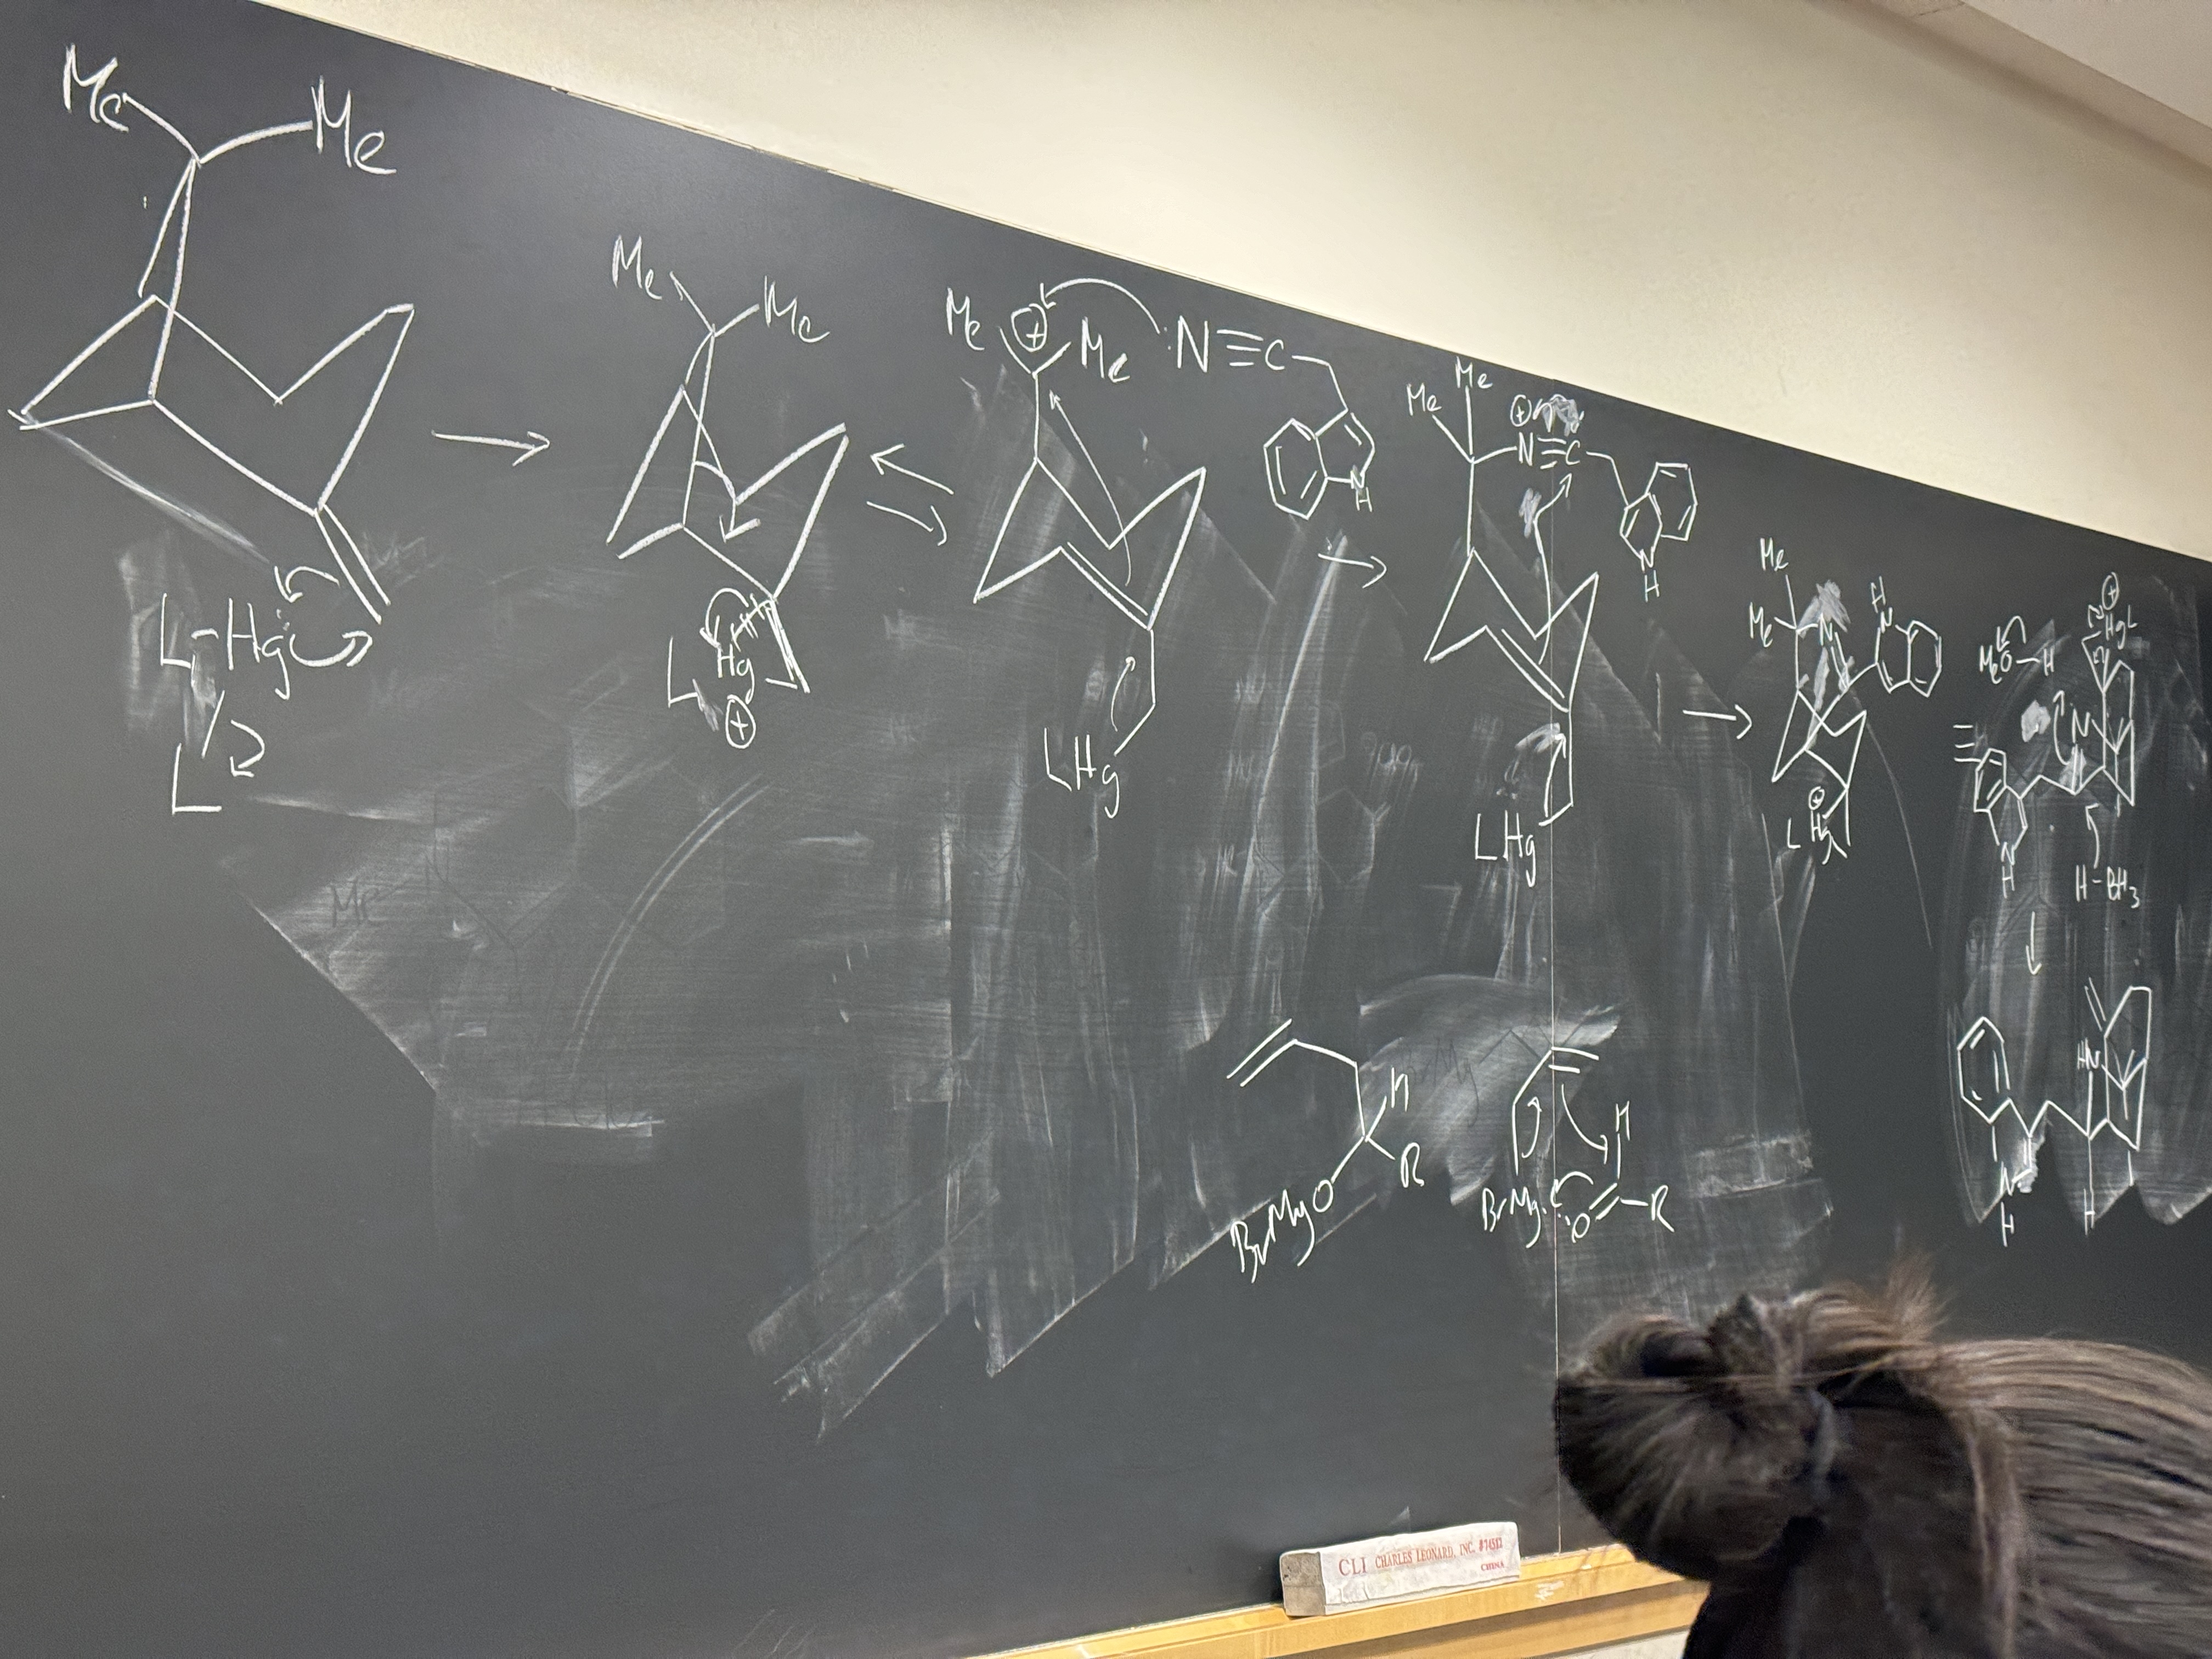 Me Me
L-Hg:
L
Me Me
L Hg
⊕
Me ⊕ Me :N≡C
N
H
LHg
Me Me
⊕
N≡C
N
H
LHg
Me
Me N
H
N
⊕
LHg
MeO-H
⊕
HgL
N
≡
N
H
H-BH3
HN
N
H
H
H
R
BrMgO
H
BrMg :O R
CLI CHARLES LEONARD, INC. #74582
CHINA